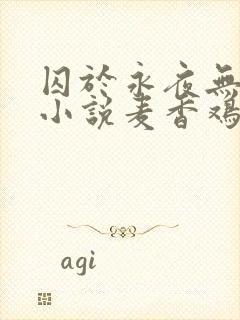 囚於永夜無
小說麦香鸡
agi